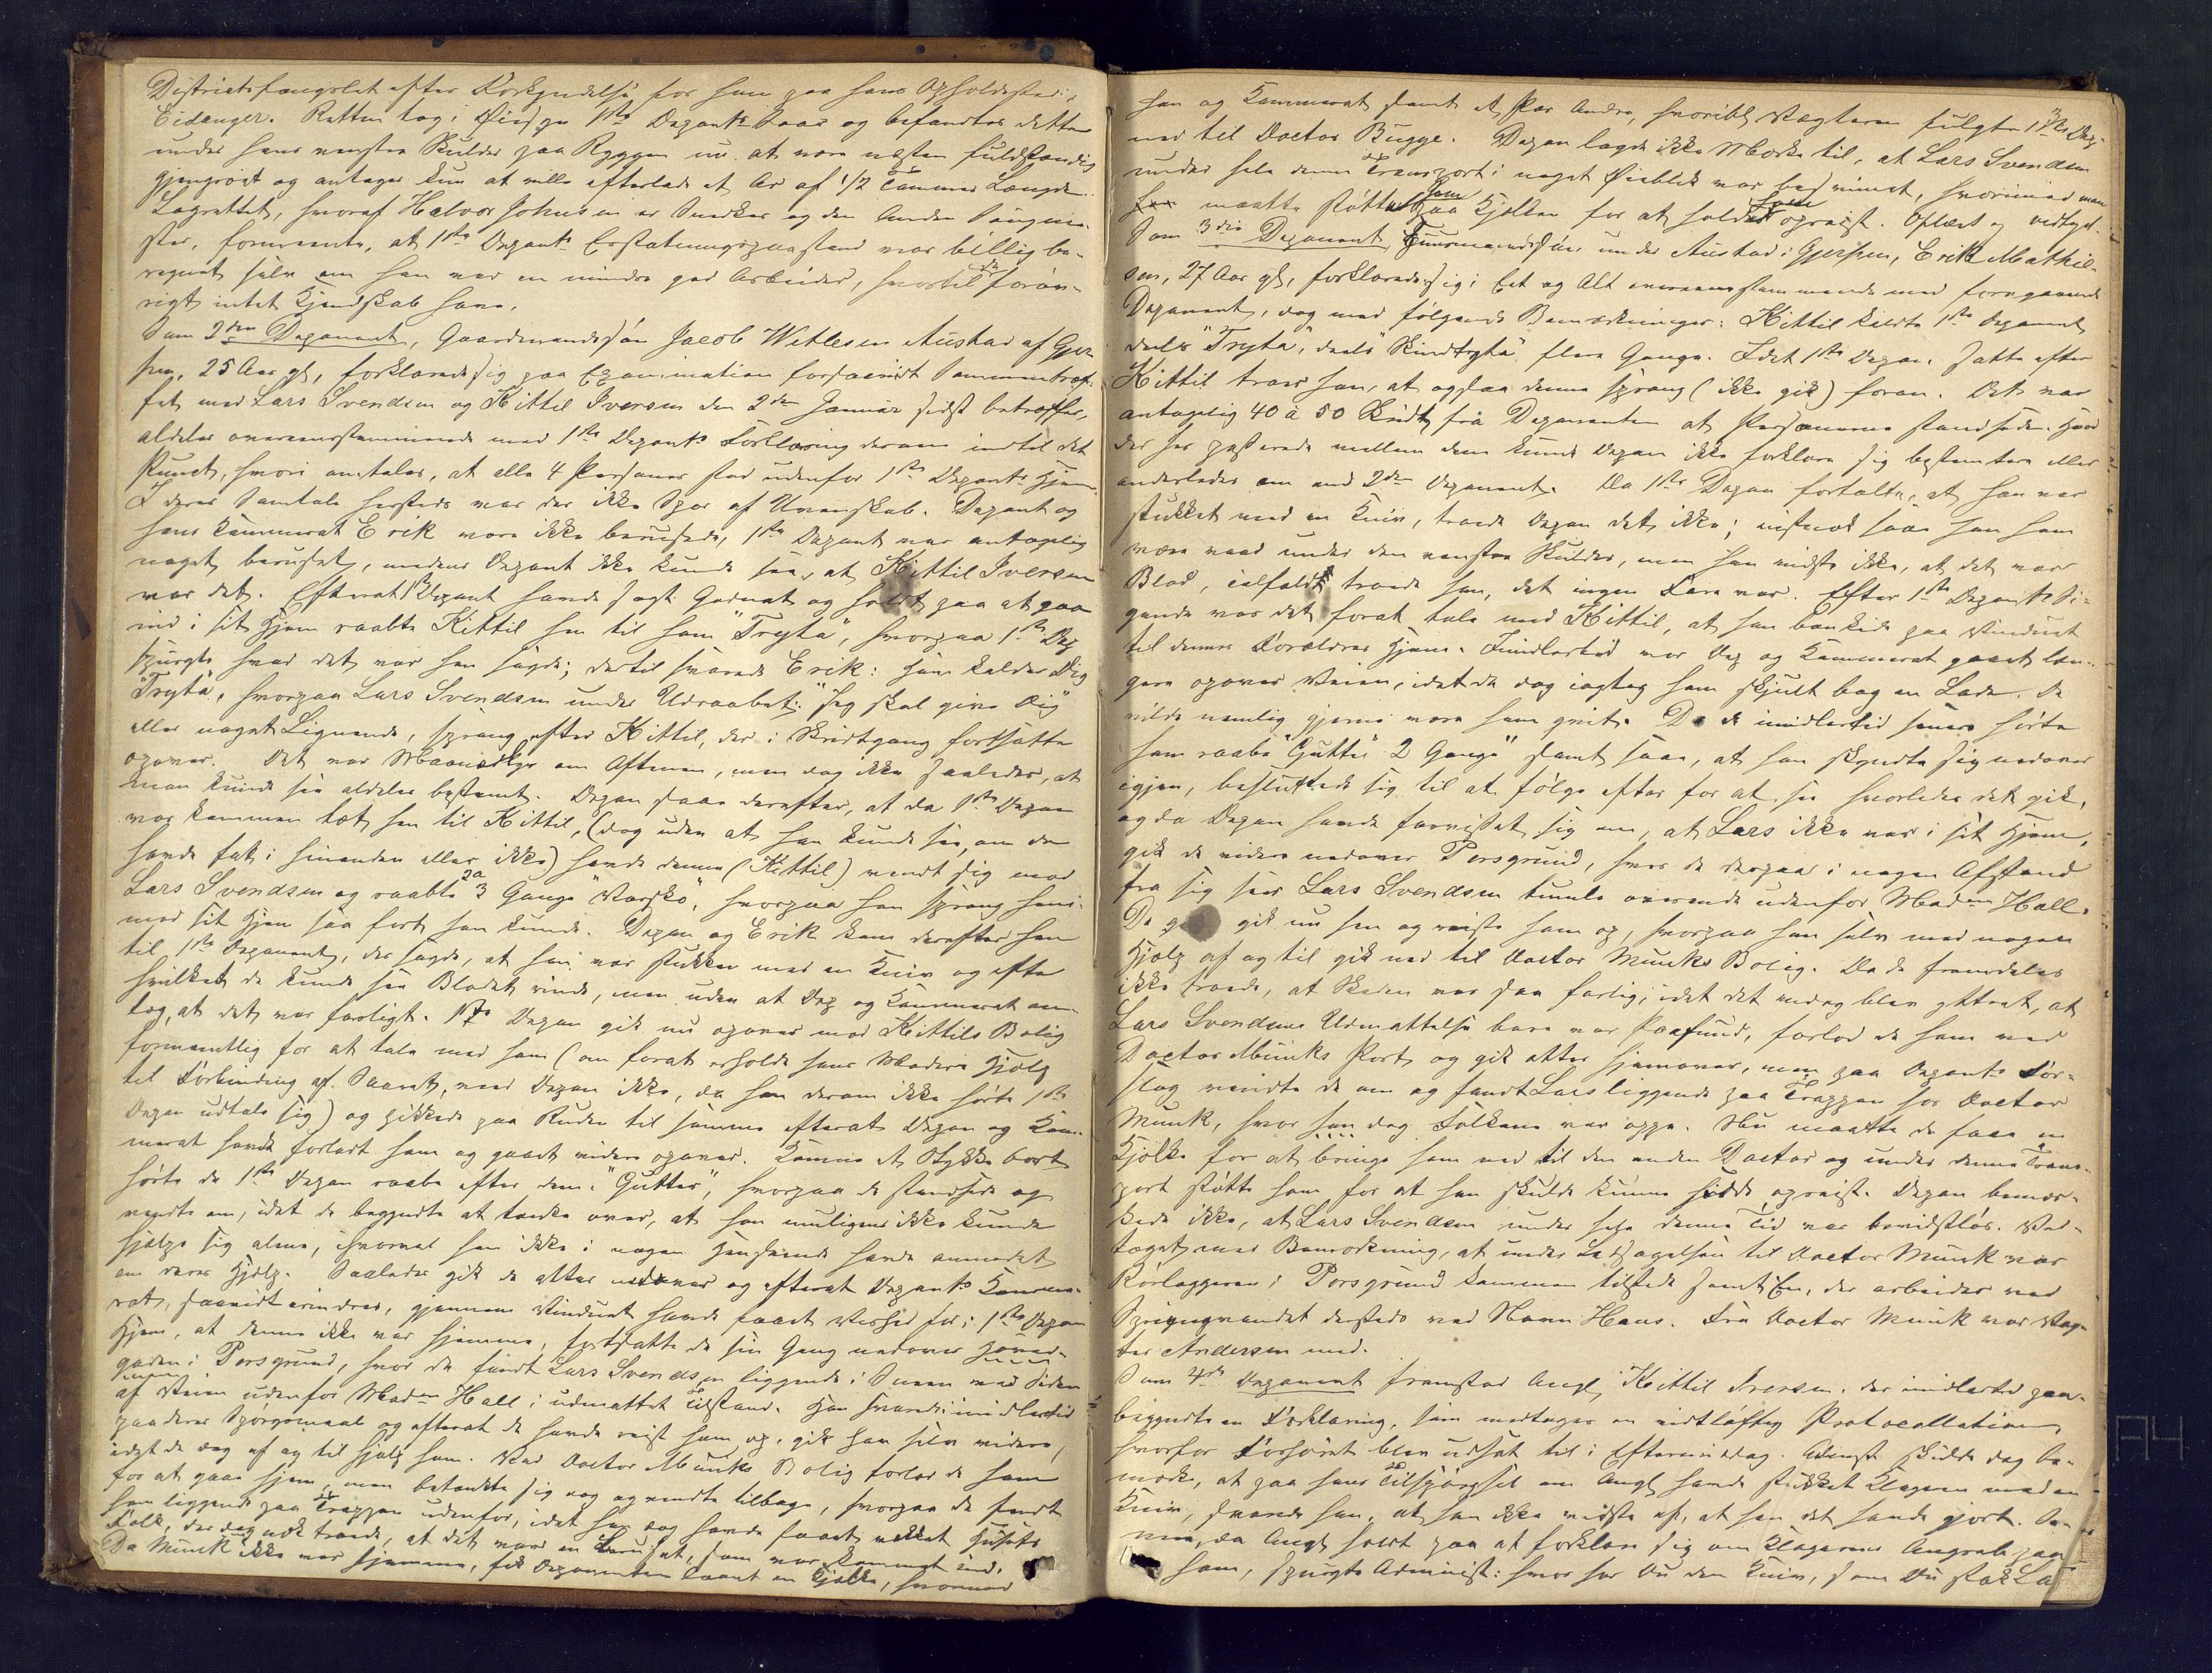 Districtsfængslet efter Forkyndelse for ham paa hans Opholdssted i
Eidanger. Retten tog i Øiesyn 1ste Depont⁠s Saar og befandtes dette
under hans venstre Skulder paa Ryggen nu at være næsten fuldstændig
gjengroet og antages kun at ville efterlade et Ar af 1/2 Tommes Længde.
Lagrettet, hvoraf Halvor Johnsen er Snedker og den Anden Saugme-
ster, formeente, at 1ste Depont⁠s Erstatningspaastand var billig be-
regnet selv om han var en mindre god Arbeider, hvortil de forøv-
rigt intet Kjendskab have.
Som 2den Deponent, Gaardmandssøn Jacob Wetlesen Austad af Gjer-
pen, 25 Aar gl, forklarede sig paa Examination forsaavidt Sammentræf-
fet med Lars Svendsen og Kittil Iversen den 2den Januar sidst betræffer,
aldeles overeensstemmende med 1ste Depont⁠s Forklaring derom indtil det
Punct, hvori omtales, at alle 4 Personer stod udenfor 1ste Depont⁠s Hjem.
I deres Samtale hersteds var der ikke Spor af Uvenskab. Depont og
hans Kammerat Erik vare ikke berusede, 1ste Depont var antagelig
noget beruset, medens Depont ikke kunde see, at Kittil Iversen
var det. Efterat 1ste Depont havde sagt Godnat og holdt paa at gaa
ind i sit Hjem raabte Kittil hen til ham "Tryta", hvorpaa 1ste Dep
spurgte hvad det var han sagde; dertil svarede Erik: han kalder Dig
"Tryta", hvorpaa Lars Svendsen under Udraabet: "Jeg skal give Dig"
eller noget Lignende, sprang efter Kittil, der i Skridtgang fortsatte
opover. Det var Maanelys om Aftenen, men dog ikke saaledes, at
man kunde see aldeles bestemt. Depon saae derefter, at da 1ste Depon
var kommen tæt hen til Kittil, (dog uden at han kunde see, om de
havde fat i hinanden eller ikke) havde denne (Kittil) vendt sig mod
Lars Svendsen og raabte 2 a 3 Gange "Varsko", hvorpaa han sprang hen i-
mod sit Hjem saa fort han kunde. Depon og Erik kom derefter hen
til 1ste Deponent, der sagde, at han var stukken med en Kniv og efter
hvilket de kunde see Blodet rinde, men uden at Dep og Kammerat an-
tog, at det var farligt. 1ste Depon gik nu opover mod Kittils Bolig
formeentlig for at tale med ham (om forat erholde hans Moders Hjelp
til Forbinding af Saaret, veed Depon ikke, da han derom ikke hørte 1ste
Depon udtale sig) og pikkede paa Ruden til samme efterat Depon og Kam-
merat havde forladt ham og gaaet videre opover. Komne et Stykke bort
hørte de 1ste Depon raabe efter dem: "Gutter", hvorpaa de standsede og
vendte om, idet de begyndte at tænke over, at han muligens ikke kunde
hjelpe sig alene, hvorvel han ikke i nogen Henseende havde anmodet
om deres Hjelp. Saaledes gik de atter nedover og efterat Depont⁠s Kamme-
rat, saavidt erindres, gjennem Vinduet havde faaet Vished for i 1ste Depon
Hjem, at denne ikke var hjemme, fortsatte de sin Gang nedover Hoved-
gaden i Porsgrund, hvor de fandt Lars Svendsen liggende i Sneen ved Siden
af Veien udenfor Madm Hall i udmattet Tilstand. Han svarede imidlertid
paa deres Spørgsmaal og efterat de havde reist ham op, gik han selv videre,
idet de dog af og til hjalp ham. Ved Doctor Munks Bolig forlod de ham
for at gaae hjem, men betænkte sig dog og vendte tilbage, hvorpaa de fandt
ham liggende paa Trappen udenfor, idet han dog havde faaet vækket Husets
Folk, der dog nok troede, at det var en Beruset, som var kommet ind.
Da Munk ikke var hjemme, fik Deponenten laant en Kjelke, hvormed
han og Kammerat samt et Par Andre, hvoriblt Vægteren fulgte 1ste Dep
ned til Doctor Bugge. Depon lagde ikke Mærke til, at Lars Svendsen
under hele denne Transport i noget Øieblik var besvimet, hvorimod man
maatte støtte ham paa Kjelken for at holde ham opreist. Oplæst og vedtaget.
Som 3die Deponent, Huusmandssøn under Austad i Gjerpen, Erik Mathie-
sen, 27 Aar gl, forklarede sig i Eet og Alt overeensstemmende med foregaaende
Deponent, dog med følgende Bemærkninger: Kittil kaldte 1ste Deponent
deels "Tryta", deels "Hundtryta" flere Gange. Idet 1ste Depon. satte efter
Kittil troer han, at ogsaa denne sprang (ikke gik) foran. Det var
antagelig 40 à 50 Skridt fra Deponenten at Personerne standsede. Hvad
der her passerede mellem dem kunde Depon ikke forklare sig bestemtere eller
anderledes om end 2den Deponent. Da 1ste Depon fortalte, at han var
stukket med en Kniv, troede Depon det ikke; vistnok saae han ham
være vaad under den venstre Skulder, men han vidste ikke, at det var
Blod, ialfald troede han, det ingen Fare var. Efter 1ste Depont⁠s Si-
gende var det forat tale med Kittil, at han bankede paa Vinduet
til dennes Forældres Hjem. Imidlertid var Dep og Kammerat gaaet læn-
gere opover Veien, idet de dog iagttog ham skjult bag en Lade. De
vilde nemlig gjerne være ham qvit. Da de imidlertid senere hørte
ham raabe "Gutter" 2 Gange samt saae, at han skyndte sig nedover
igjen, besluttede sig til at følge efter for at see hvorledes det gik,
og da Depon havde forvisset sig om, at Lars ikke var i sit Hjem,
gik de videre nedover Porsgrund, hvor de derpaa i nogen Afstand
fra sig saae Lars Svendsen tumle overende udenfor Madm Hall.
De gik nu hen og reiste ham op, hvorpaa han selv med nogen
Hjelp af og til gik ned til Doctor Munks Bolig. Da de fremdeles
ikke troede, at Skaden var saa farlig, idet det endog blev yttret, at
Lars Svendsens Udmattelse bare var Paafund, forlod de ham ved
Doctor Munks Port og gik atter hjemover, men paa Depont⁠s For-
slag vendte de om og fandt Lars liggende paa Trappen hos Doctor
Munk, hvor dog Folkene var oppe. Nu maatte de faae en
Kjelke for at bringe ham ned til den anden Doctor og under denne Trans-
port støtte ham for at han skulde kunne sidde opreist. Depon bemær-
kede ikke, at Lars Svendsen under hele denne Tid var bevidstløs. Ved-
taget med Bemærkning, at under Ledsagelsen til Doctor Munk var
Rørlæggeren i Porsgrund kommen tilstede samt En, der arbeider ved
Springvandet dersteds ved Navn Hans. Fra Doctor Munk var Væg-
ter Andersen med.
Som 4de Deponent fremstod Angl, Kittil Iversen, der imidlertid paa-
begyndte en Forklaring, som medtager en vidtløftig Protocollation,
hvorfor Forhøret blev udsat til i Eftermiddag. Administ skulde dog be-
mærke, at paa hans Tilspørgsel om Angl havde stukket Klageren med en
Kniv, svarede han, at han ikke vidste af, at han det havde gjort.
da Angl holdt paa at forklare sig om Klagerens Angreb paa
ham, spurgte Administ: hvor har Du den Kniv, som Du stak La